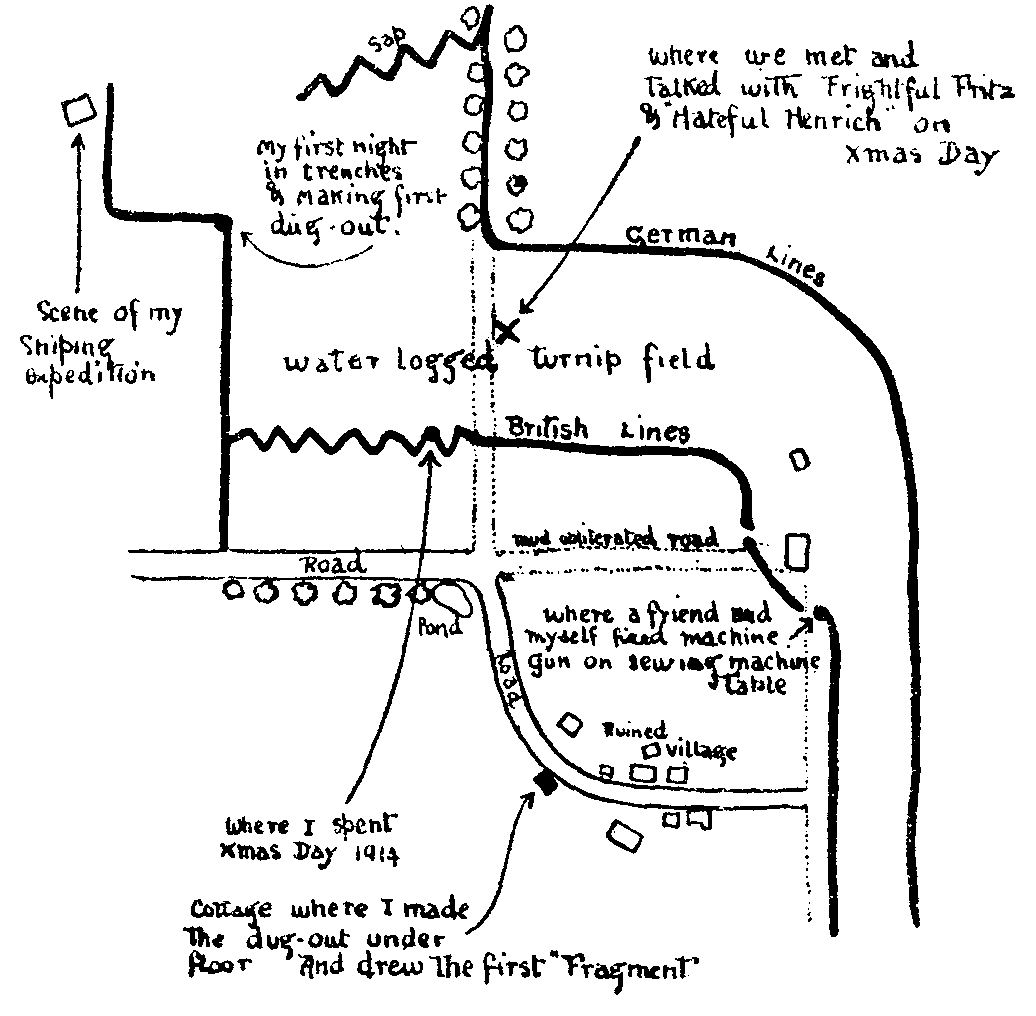 Sap
where we met and
Talked with Frightful Fritz
& "Hateful Henrich" on
Xmas Day
My first night
in trenches
& making first
dug-out.
German Lines
Scene of my
Sniping
Expedition
water logged turnip field
British Lines
mud obliterated road
Road
Pond
where a friend and
myself fixed machine
gun on sewing machine
table
Road
Ruined
village
where I spent
Xmas Day 1914
Cottage where I made
The dug-out under
floor And drew The first "Fragment"